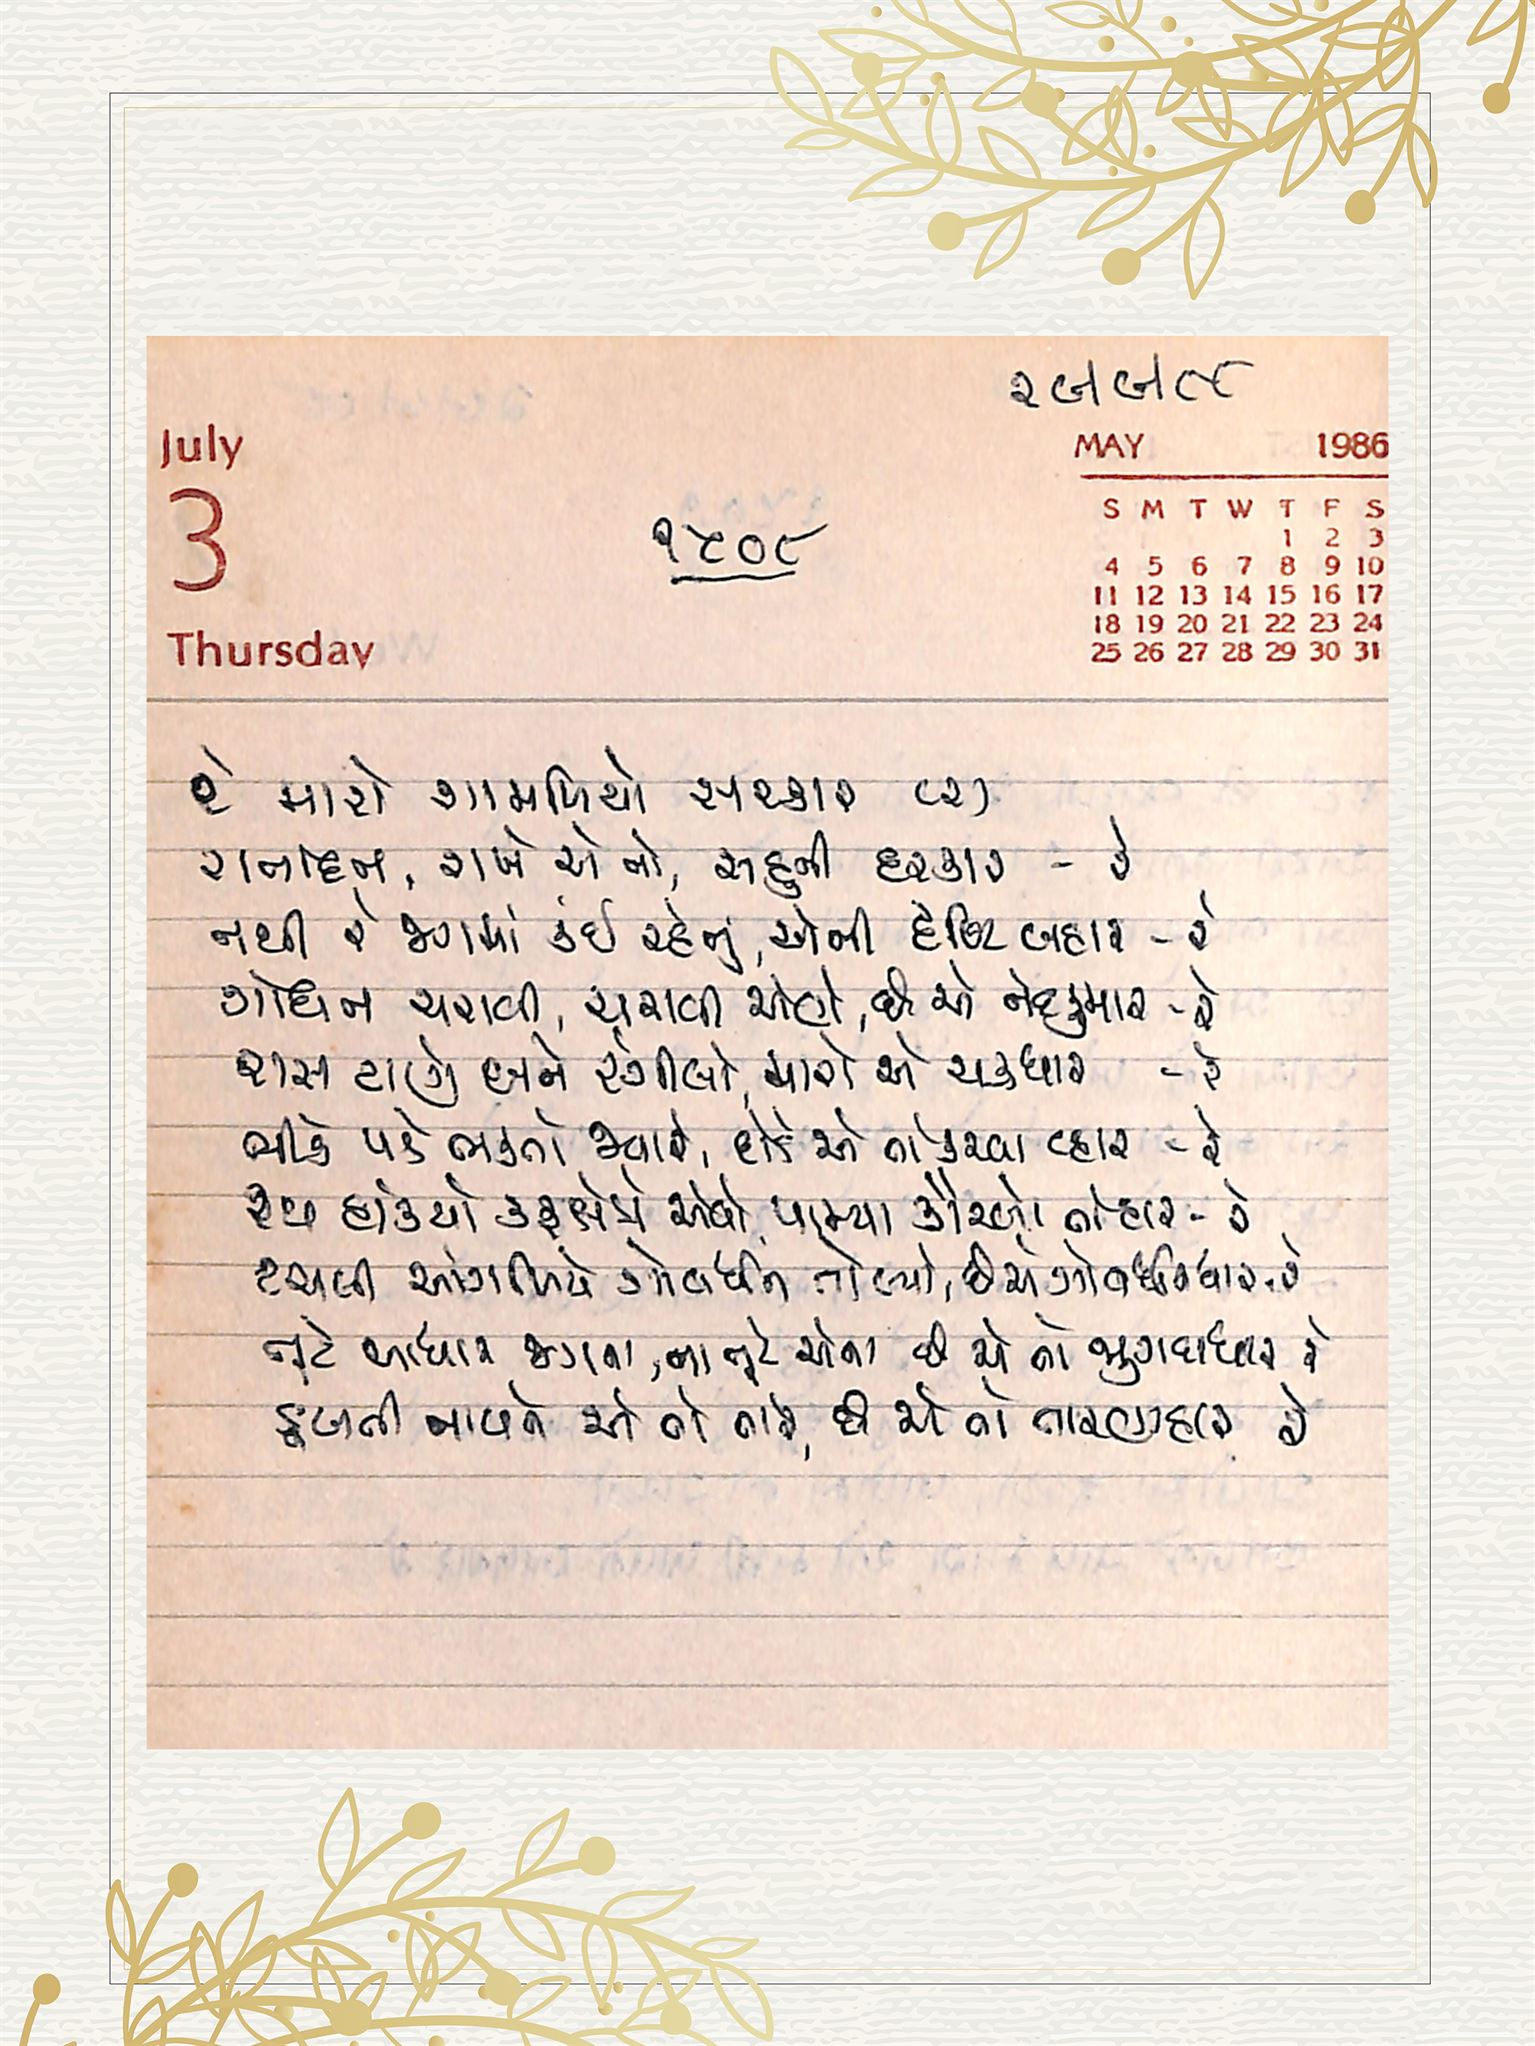 ૨૯૯૮
July
3
Thursday
MAY 1986
S M T W T F S
1 2 3
4 5 6 7 8 9 10
11 12 13 14 15 16 17
18 19 20 21 22 23 24
25 26 27 28 29 30 31
રે મારો શામળિયો સરકાર (૨)
રાતદિન, રાખે એ તો, સહુની દરકાર - રે
નથી રે જગમાં કંઈ રહેતું, એની દૃષ્ટિ બહાર - રે
ગોધન ચરાવી, ચરાવી એણે, છે એ નંદકુમાર - રે
રાસ ટાણે બને રંગીલો, મારો એ ચક્રધાર - રે
ભીડ પડે ભક્તો જ્યારે, દોડે એ તો કરવા વ્હાર - રે
રથ હાંક્યો કુરુક્ષેત્રે એવો, પામ્યા કૌરવો તો હાર - રે
ટચલી આંગળિયે ગોવર્ધન તોલ્યો, છે એ ગોવર્ધનધાર - રે
તૂટે આધાર જગના, ના તૂટે એના છે એ તો જુગદાધાર રે
ડૂબતી નાવને એ તો તારે, છે એ તો તારણહાર રે